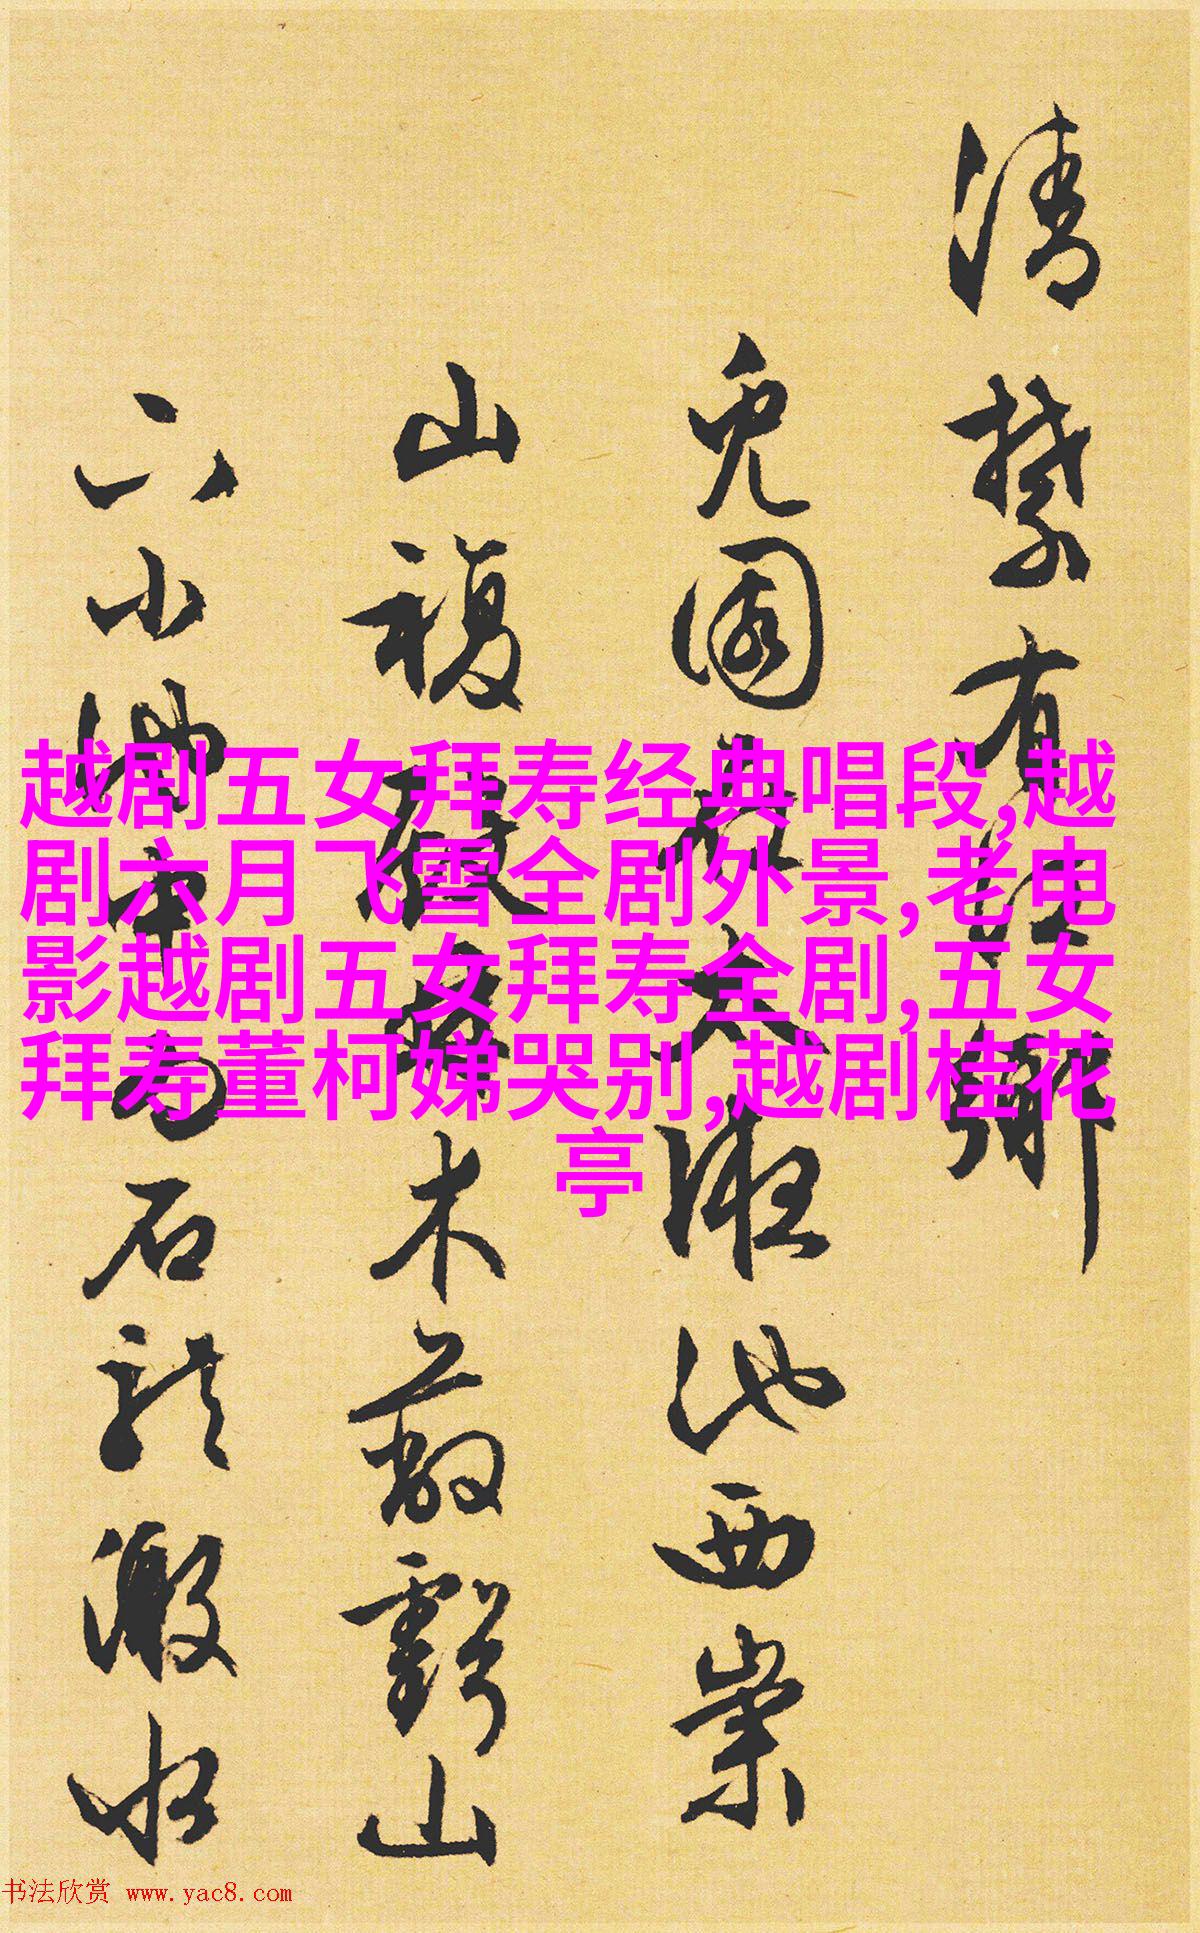 清禁有江鄉
兔園在太液池西崇
山複木蔽虧山
下小池中石龍激水
越剧五女拜寿经典唱段,越
剧六月飞雪全剧外景,老电
影越剧五女拜寿全剧,五女
拜寿董柯娣哭别,越剧桂花
亭
书法欣赏 www.yac8.com